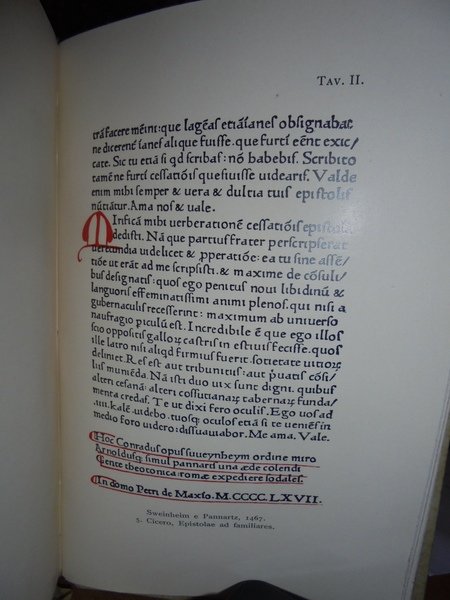 Tav. II.
trā facere mēini: que lagēas etiā īanes obsignabat
ne dicerent īanes aliquē fuisse. que furti eēnt exic/
cate. Sic tu etiā si qd scribas nō habebis. Scribito
tamē ne furti cessatiōis quesiuisse uidearis. Valde
enim mihi semper & uera & dulcia tuis epistolis
nūtiātur. Ama nos & uale.
MIrificā mihi uerberationē cessatiōis epistola
dedisti. Nā que partius frater perscripserat
uerecundia uidelicet & pperatiōe: ea tu sine assē/
tiōe ut erāt ad me scripsisti. & maxime de cōsuli/
bus designatis: quos ego penitus noui libidinū &
languoris effeminatissimi animi plenos. qui nisi a
gubernaculis recesserint: maximum ab universo
naufragio piculū est. Incredibile ē que ego illos
scio oppositis gallorꝫ castris in estiuis fecisse. quos
ille latro nisi aliqd firmius fuerit. societate uitiorꝫ
deliniet. Res est aut tribunitiis: aut puatis cōsi/
liis muniēda. Nā isti duo uix sunt digni. quibus
alteri cesenā: alteri cossutianaꝫ tabernaꝫ funda/
menta credas. Te ut dixi fero oculis. Ego uos ad
.iii. kalē. uidebo. tuosqꝫ oculos etiā si te ueniēs in
medio foro uidero: dissuauiabor. Me ama. Vale.
Hoc Conradus opus suueynheym ordine miro
Arnoldusqꝫ simul pannarts una æde colendi
Gente theotonica: romæ expediere sodales.
In domo Petri de Maxīo. M.CCCC.LXVII.
Sweinheim e Pannartz, 1467.
3. Cicero, Epistolae ad familiares.